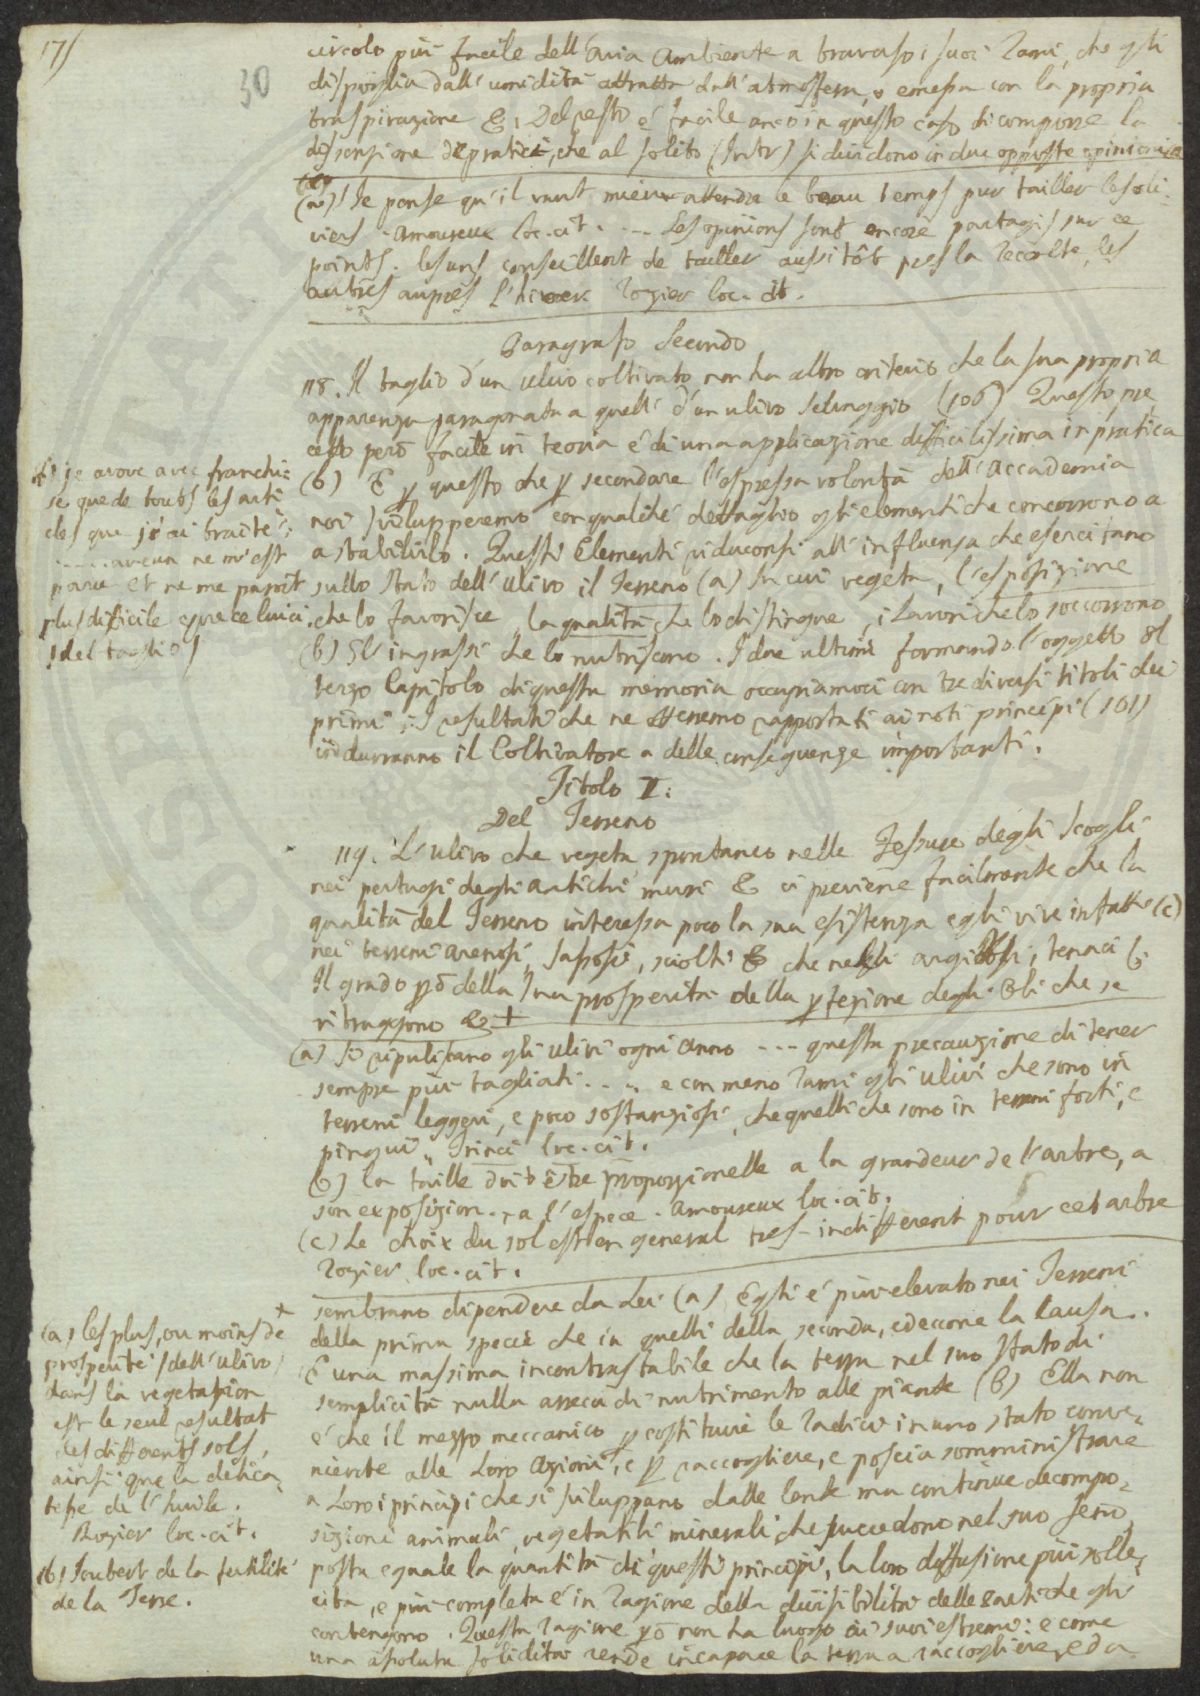 17)
30
circolo più facile dell'aria ambiente a traverso i suoi rami, che gli
dispoglia dall'umidità attratta dall'atmosfera, o emessa con la propria
traspirazione &. Del resto é facile anco in questo caso di comporre la
dissenzione de pratici, che al solito (Intr) si dividono in due opposte opinioni (a)
(a) Je pense qu'il vaut mieux attendre le beau temps pur tailler les oli-
viers. Amoureux loc. cit. .... Les opinions sont encore partagis sur ce
points. les uns conseillent de tailler aussitôt pres la recolte, les
autres aupres l'hiver Rozier loc. cit.
Paragrafo Secondo
118. Il taglio d'un ulivo coltivato non ha altro criterio che la sua propria
apparenza paragonata a quell' d'un ulivo selvaggio (106) Questo pre
cetto però facile in teoria é di una applicazione difficilissima in pratica
(*) je avoue avec franchi=
se que de touts les arti
cles que j'ai traité
...... aucun ne m'est
parue et ne me paroit
plus dificile que celuici
(del taglio)
(*) E p questo che p secondare l'espressa volontà dell'Accademia
noi svilupperemo con qualche dettaglio gli elementi che concorrono a
a stabilirlo. Questi Elementi riduconsi all'influenza che esercitano
sullo stato dell'ulivo il Terreno (a) in cui vegeta, l'esposizione
che lo favorisce, la qualità che lo distingue, i lavori che lo soccorrono
(b) Gl'ingrassi che lo nutriscono. I due ultimi formando l'oggetto del
terzo Capitolo di questa memoria occupiamoci con tre diversi titoli dei
primi: I resultati che ne otterremo rapportati ai noti principi (101)
indurranno il Coltivatore a delle conseguenze importanti.
Titolo I:
Del Terreno
119. L'ulivo che vegeta spontaneo nelle fessure degli scogli
nei pertugi degli antichi muri & ci previene facilmente che la
qualità del Terreno interessa poco la sua esistenza egli vive infatti (c)
nei terreni arenosi, sassosi, sciolti & che negli argillosi, tenaci &.
Il grado pò della sua prosperità della pfezione degli Oli che se
ritraggono & +
(a) Si ripuliscano gli ulivi ogni anno --- questa precauzione di tener
sempre più tagliati .... e con meno rami gli ulivi che sono in
terreni leggeri, e poco sostanziosi, che quelli che sono in terreni forti, e
pingui, Trinci loc. cit.
(b) la taille doit être proporzionelle a la grandeur de l'arbre, a
son exposizion. a l'espece. Amoureux loc. cit.
(c) Le choix du sol est en general tres-indifferent pour cet arbre
Rozier loc. cit.
+
(a) les plus, ou moins de
prosperité (dell'ulivo)
dans la vegetation
est le seul resultat
des differents sols,
ainsi que la delica-
tesse de l'huile.
Rozier loc. cit.
(b) Joubert de la fertilité
de la Terre.
sembrano dipendere da Lui (a) Egli é più elevato nei Terreni
della prima specie che in quelli della seconda, ed eccone la Causa.
E una massima incontrastabile che la terra nel suo stato di
semplicità nulla arreca di nutrimento alle piante (b) Ella non
é che il mezzo meccanico p costituire le radici in uno stato conve-
niente alle loro azioni, e p raccogliere, e poscia somministrare
a Loro i principi che si sviluppano dalle lente ma continue decompo-
sizioni animali, vegetabili minerali che succedono nel suo seno,
posta eguale la quantità di questi principi, la loro diffusione più solle-
cita, e più completa é in ragione della divisibilità delle parti che gli
contengono. Questa ragione pò non ha luogo ai suoi estremi: e come
una assoluta solidità rende incapace la terra a raccogliere, e da